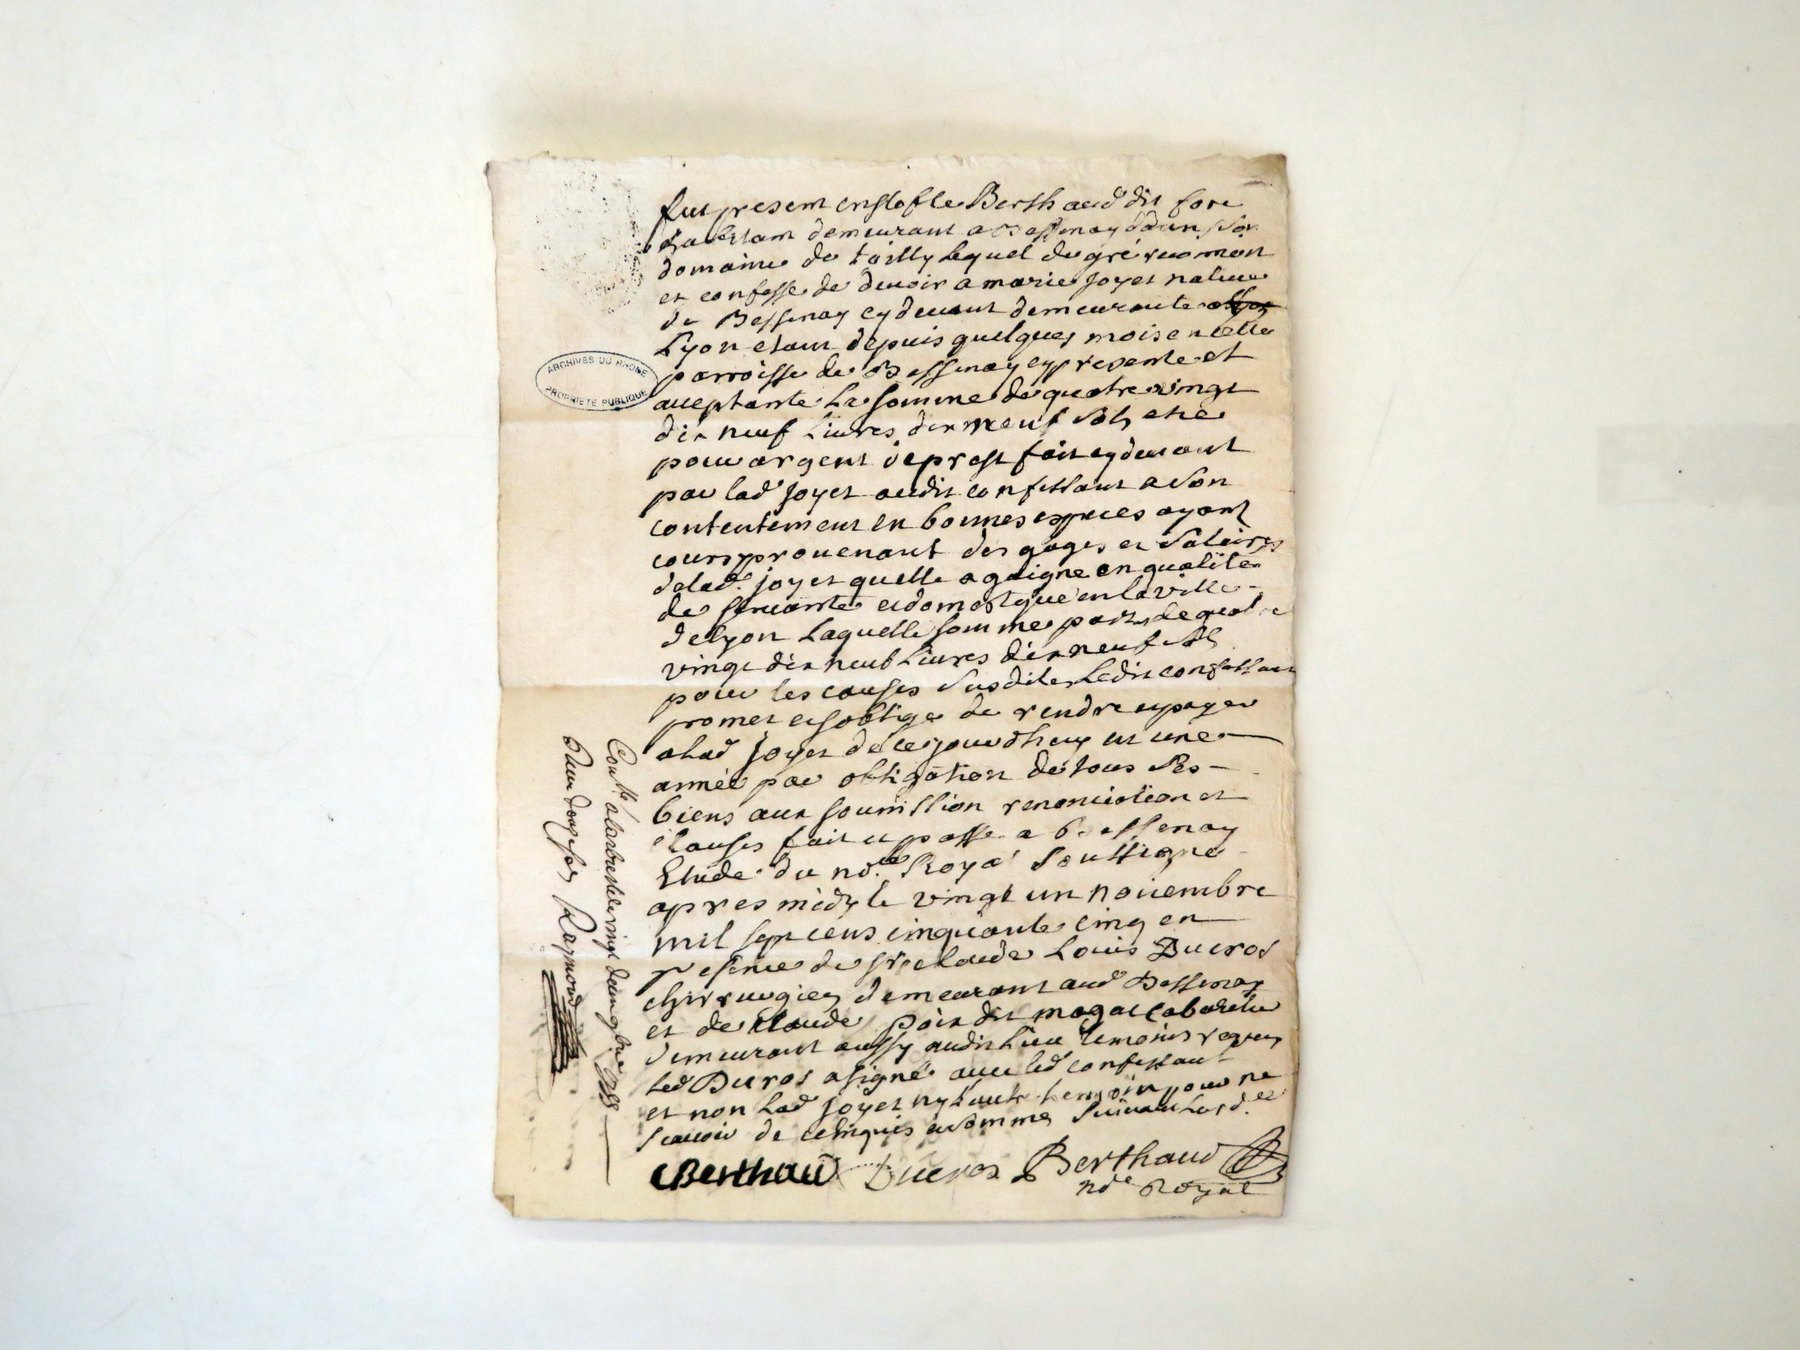 fut present Berthaud dit fore
habitant demeurant a Bessenay dans son
domaine de tailly lequel de gré reconnoit
et confesse de devoir a marie Joyet native
de Bessenay cydevant demeurante
Lyon etant depuis quelques mois en cette
parroisse de Bessenay cy presente et
acceptante La somme de quatre vingt
dix neuf Livres dix neuf sols et ce
pour argent de prest fait cydevant
par lad Joyet audit confessant a son
contentement en bonnes especes ayant
cours provenant des gages et salaires
de lad Joyet quelle a gaigne en qualite
de servante et domestique en la ville
de lyon Laquelle somme de quatre
vingt dix neuf Livres dix neuf sols
pour les causes susdites Ledit confessant
promet et soblige de rendre et payer
a lad Joyet de ce jourdhuy en une
année par obligation de tous ses
biens aux soumission renonciation et
clauses fait et passé a Bessenay
Etude du nore Royal soussigné
apres midy le vingt un novembre
mil sept cens cinquante cinq en
presence de sr claude Louis Ducros
chirurgien demeurant aud Bessenay
et de Claude dit magat cabaretier
demeurant aussy audit Lieu temoins requis
led Ducros a signé avec led confessant
et non lad Joyet ny lautre temoin pour ne
scavoir de ce enquis et sommés suivant les d.es
Berthaud Ducros Berthaud
nore Royal
ARCHIVES DU RHONE
PROPRIETE PUBLIQUE
Conlle a larbresle le vingt deux 9bre 1755
Raymond